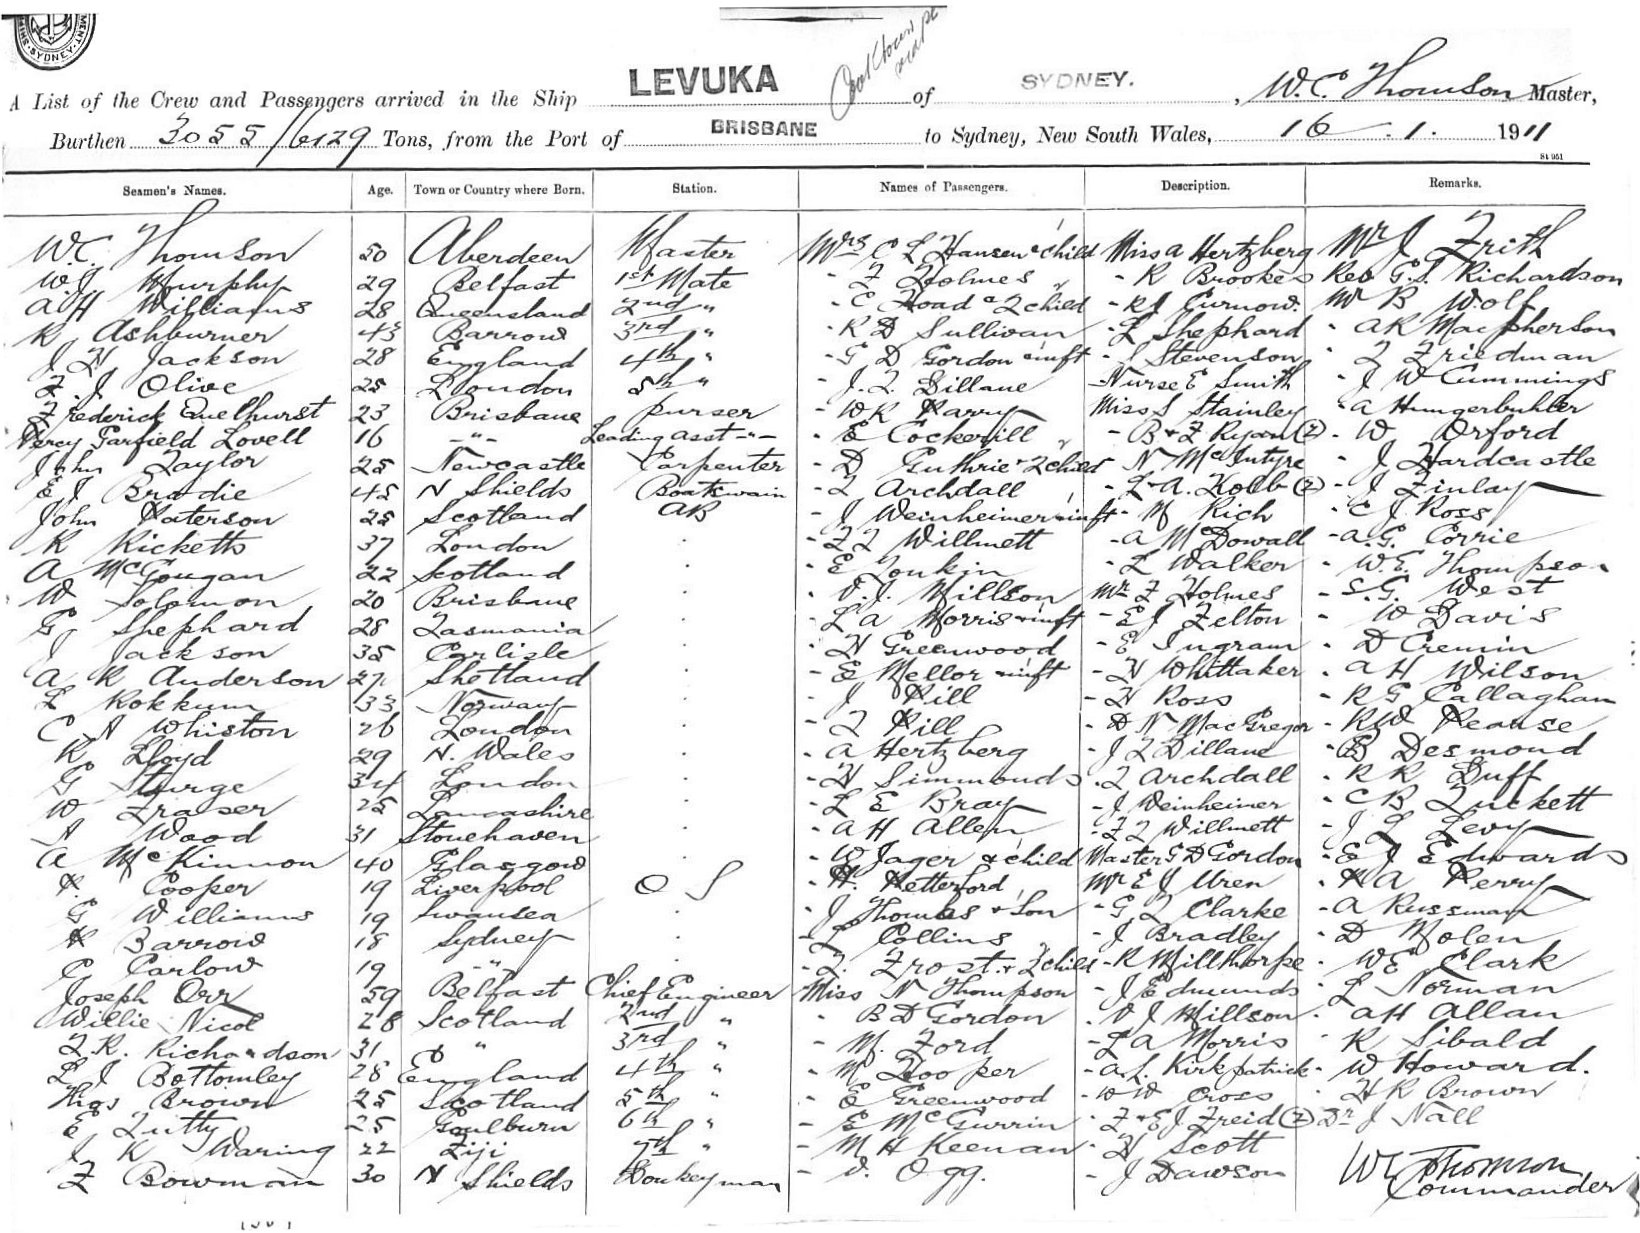 SYDNEY
LEVUKA SYDNEY.
A List of the Crew and Passengers arrived in the Ship of , W.C. Thomson Master,
Burthen 3055/6129 Tons, from the Port of BRISBANE to Sydney, New South Wales, 16 . 1. 1911
St 951
Seamen's Names. Age. Town or Country where Born. Station. Names of Passengers. Description. Remarks.
W.C. Thomson 50 Aberdeen Master Mrs C L Hansen & child Miss A Hertzberg Mr J Frith
W.J. Murphy 29 Belfast 1st Mate - F Holmes - K Brookes Rev G.S. Richardson
A H Williams 28 Queensland 2nd " - C Hoad & 2 child - R J Curnow. Mr B Wolf
R Ashburner 43 Barrow 3rd " - R D Sullivan - L Shephard - A R MacPherson
J H Jackson 28 England 4th " - G D Gordon & inft - Stevenson - Friedman
F. J Olive 25 London 5th " - J. F. Dillane - Nurse E Smith - J W Cummings
Frederick Quelhurst 23 Brisbane Purser - W R Parry Miss S Stainley - A Hungerbuhler
Percy Garfield Lovell 16 -"- Leading Asst -"- - E Cockerill - B & F Ryan (2) - W Orford
John Taylor 25 Newcastle Carpenter - D Guthrie & 2 child - N McIntyre - J Hardcastle
E J Brodie 45 N Shields Boatswain - F Archdall - L & A. Kolb (2) - J Finlay
John Paterson 25 Scotland AB - J Weinheimer & inft - M Rich - C J Ross
R Ricketts 37 London - F F Willmett - A McDowall - A.G. Corrie
A McGougan 22 Scotland - E Yonkin - L Walker - W.E. Thompson
W Solomon 20 Brisbane - V.J. Millson Mr F Holmes - S.G. West
G Shephard 28 Tasmania - L A Morris & inft - E J Felton - W Davis
J Jackson 35 Carlisle - H Greenwood - E Ingram - D Cremin
A R Anderson 27 Shetland - E Mellor & inft - H Whittaker - A H Wilson
L Rokkum 33 Norway - J Hill - H Ross - R G Callaghan
C A Whiston 26 London - F Hill - D N MacGregor - R W Pearse
R Lloyd 29 N. Wales - A Hertzberg - J F Dillane - B Desmond
G Sturge 34 London - H Simmonds - F Archdall - R R Duff
W Fraser 25 Lancashire - L E Bray - J Weinheimer - C B Tuckett
A Wood 31 Stonehaven - A H Allen - F F Willmett - J L Levy
A McKinnon 40 Glasgow - W Jager & child Master G D Gordon - E J Edwards
H. Cooper 19 Liverpool O S - H. Hetterford Mr E J Uren - H A Perry
G Williams 19 Swansea - J Thomas & Son - G F Clarke - A Russman
H Barrow 18 Sydney - L Collins - J Bradley - D Molen
C Carlow 19 -"- - F. Frost & 2 child - R Millthorpe - W E Clark
Joseph Orr 59 Belfast Chief Engineer Miss N Thompson - J Edmunds - L Norman
Willie Nicol 28 Scotland 2nd " - B D Gordon - V J Millson - A H Allan
F. R. Richardson 31 " 3rd " - M. Ford - L A Morris - R Sibald
L J Bottomley 28 England 4th " - M Hooper - A. L. Kirkpatrick - W Howard.
Thos Brown 25 Scotland 5th " - E Greenwood - W W Cross - H R Brown
E Tutty 25 Goulburn 6th " - E McGurrin - F & E J Freid (2) Dr J Nall
J R Waring 22 Fiji 7th " - M H Keenan - H Scott
F Bowman 30 N Shields Donkeyman - V. Ogg. - J Dawson WC Thomson
Commander